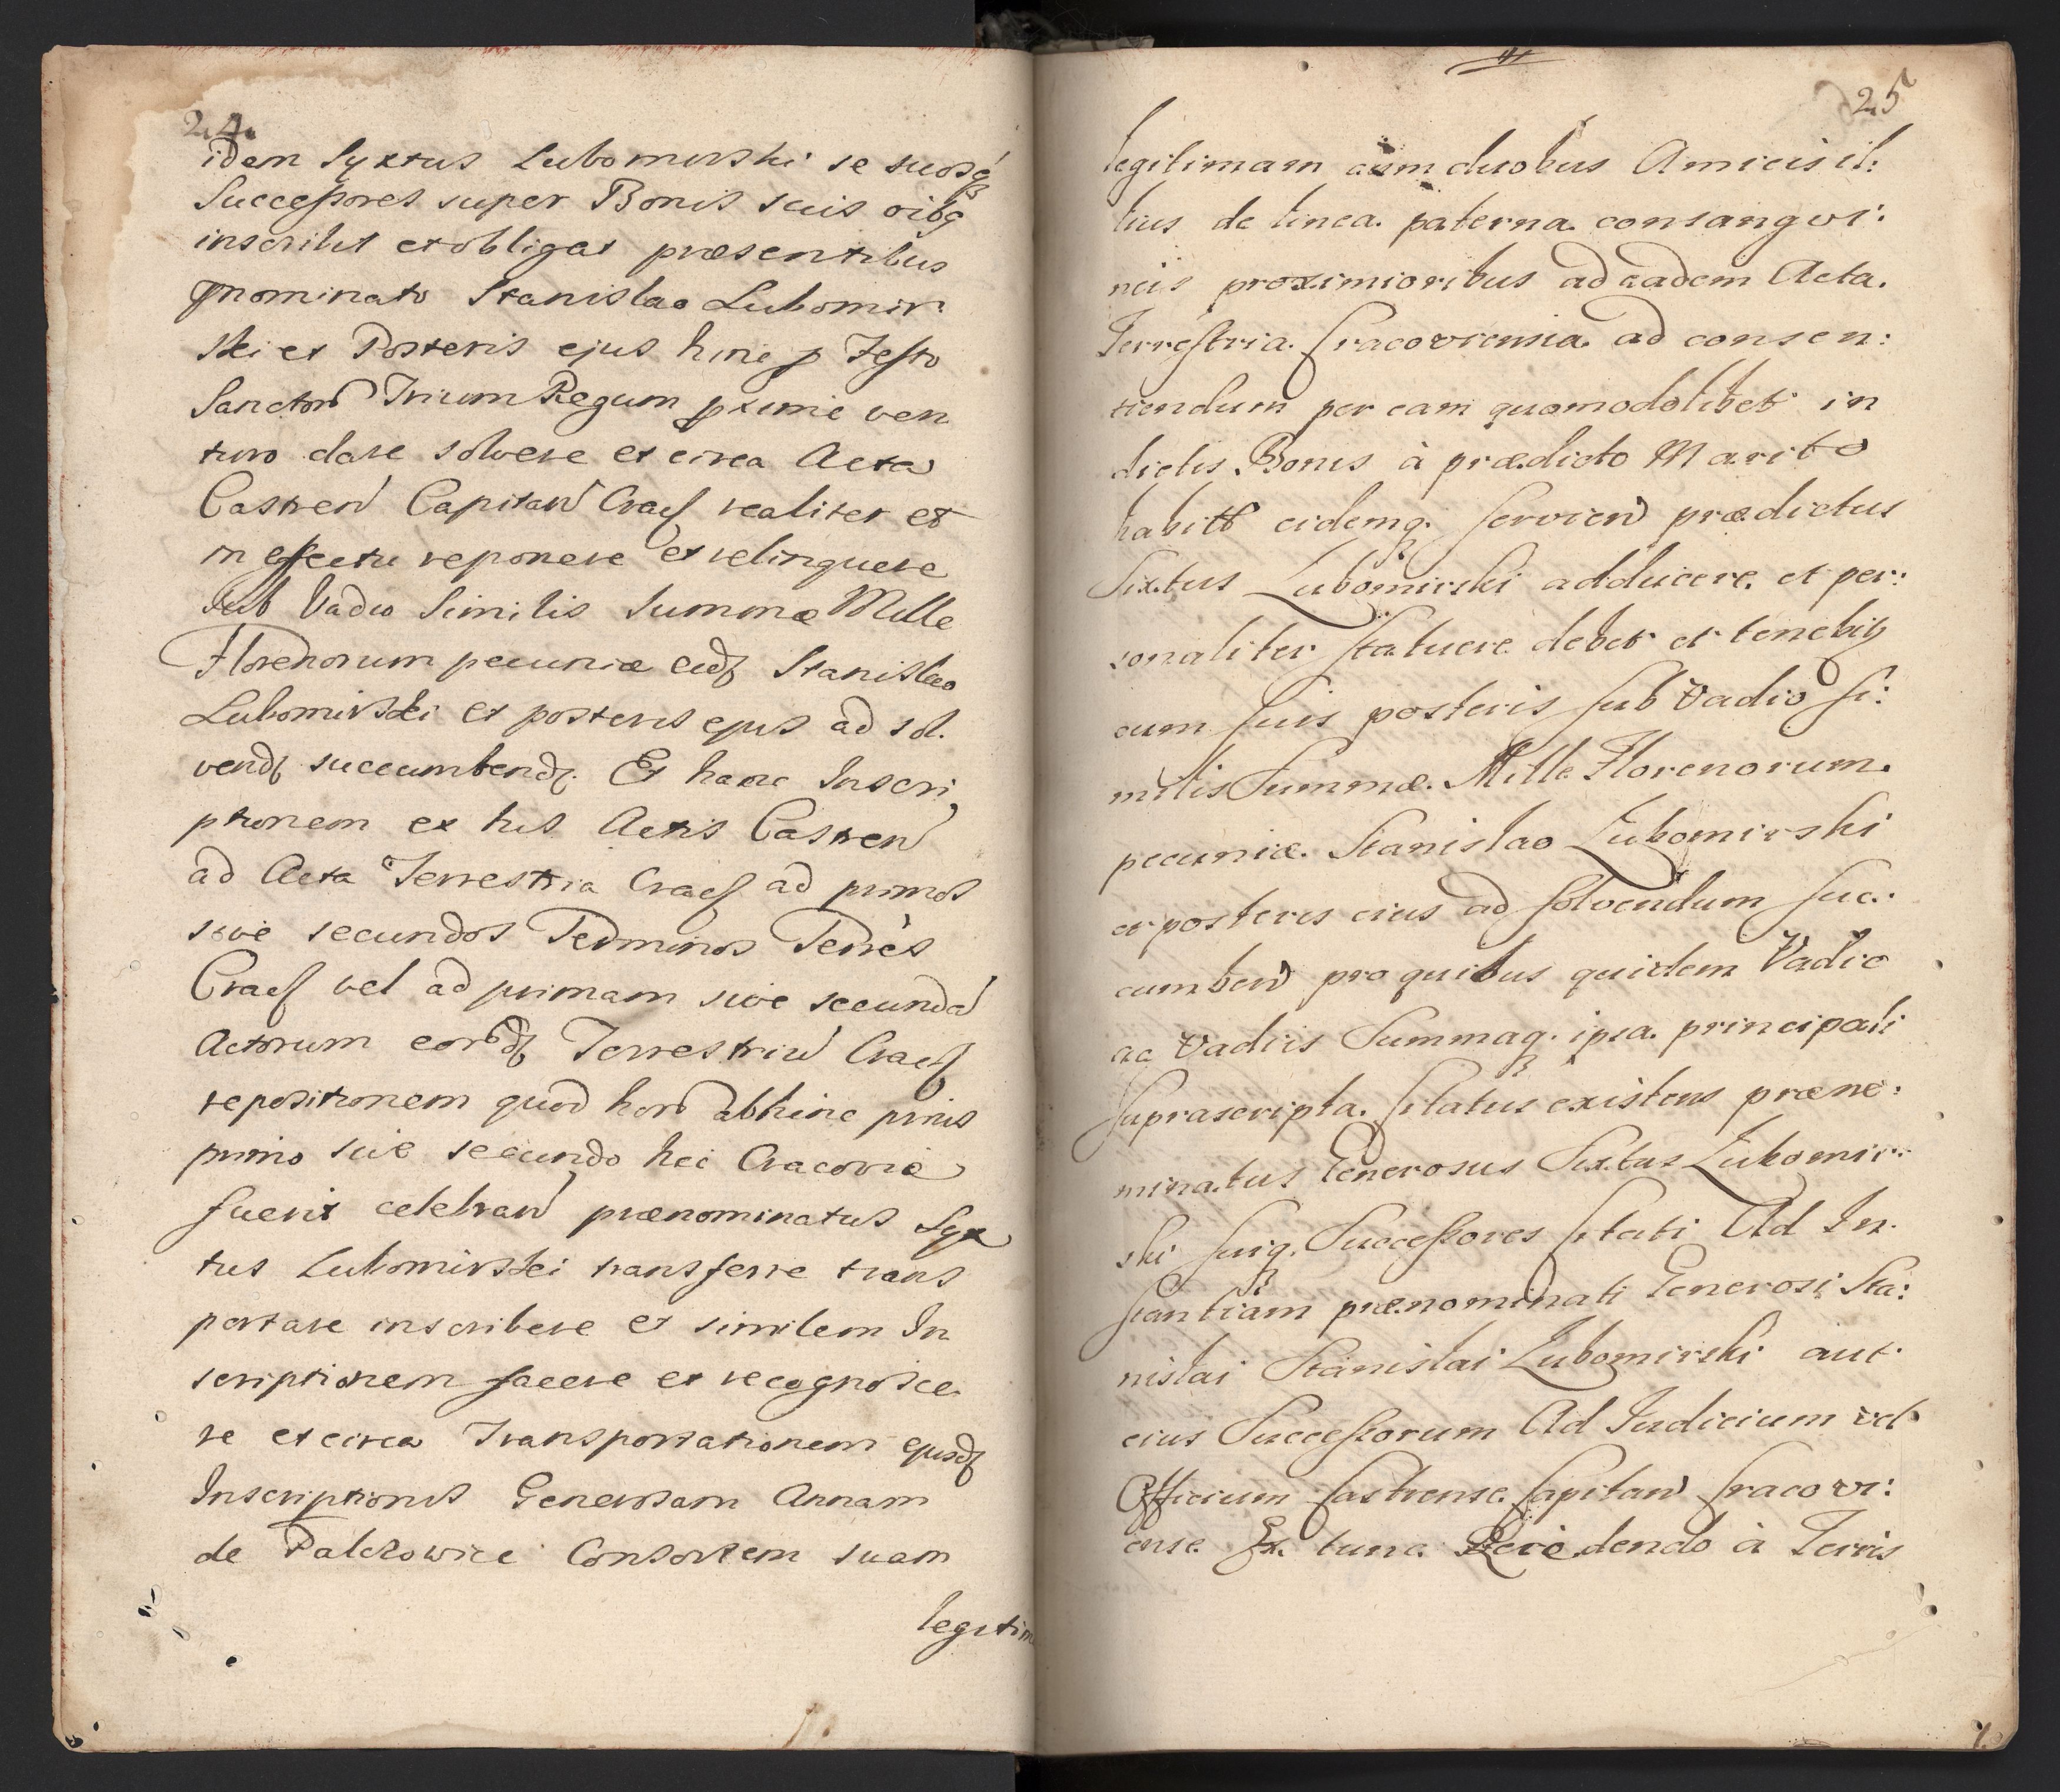 24.
idem Syxtus Lubomirski se suosq́
Successores super Bonis suis oibq
inscribit et obligat præsentibus
pnominato Stanislao Lubomir:
ski et Posteris ejus hinc p Festo
Sanctor Trium Regum pxime ven
turo dare solvere et circa Acta
Castren Capitan Cracſ realiter et
in effectu reponere et relinquere
sub Vadio Similis Summæ Mille
Florenorum pecuniæ eidſ Stanislao
Lubomirski et posteris ejus ad sol.
vendſ succumbendſ. Et hanc Inscri
ptionem ex his Actis Castren
ad Acta Terrestria Cracſ ad primos
sive secundos Terminos Terres
Cracſ vel ad primam sive secunda
Actorum eordſ Terrestriu Cracſ
repositionem quod hor abhinc prius
primo sive secundo hic Cracovie
fuerit celebran prænominatus Syx
tus Lubomirski transferre trans
portare inscribere et similem In
scriptionem facere et recognosce.
re et circa Transportationem ejusdſ
Inscriptionis Generosam Annam
de Palczowice Consortem suam
legitim
25
legitimam cum duobus Amicis il:
lius de linea paterna consangvi:
neis proximioribus ad eadem Acta
Terrestria Cracoviensia ad consen:
tiendum per eam quomodolibet in
dictis Bonis à prædicto Marito
habitis eidemq. servien prædictus
Sixtus Lubomirski adducere et per:
sonaliter statuere debet et tenebit
cum suis posteris sub Vadio si:
milis Summæ Mille Florenorum
pecuniæ Stanislao Lubomirski
et posteris eius ad solvendum suc:
cumben pro quibus quidem Vadio
ac Vadiis Summaq. ipsa principali
suprascripta citatus existens præno:
minatus Generosus Sixtus Lubomir:
ski suiq. Successores citati Ad In:
stantiam prænominati Generosi Sta:
nislai Stanislai Lubomirski aut
eius Successorum Ad Iudicium vel
Officium Castrense Capitan Cracovi:
ense Ex tunc Recedendo à Terris